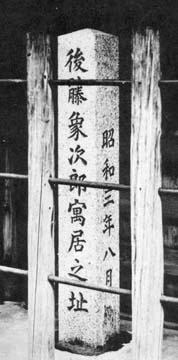 後藤象次郎寓居之址
昭和三年八月